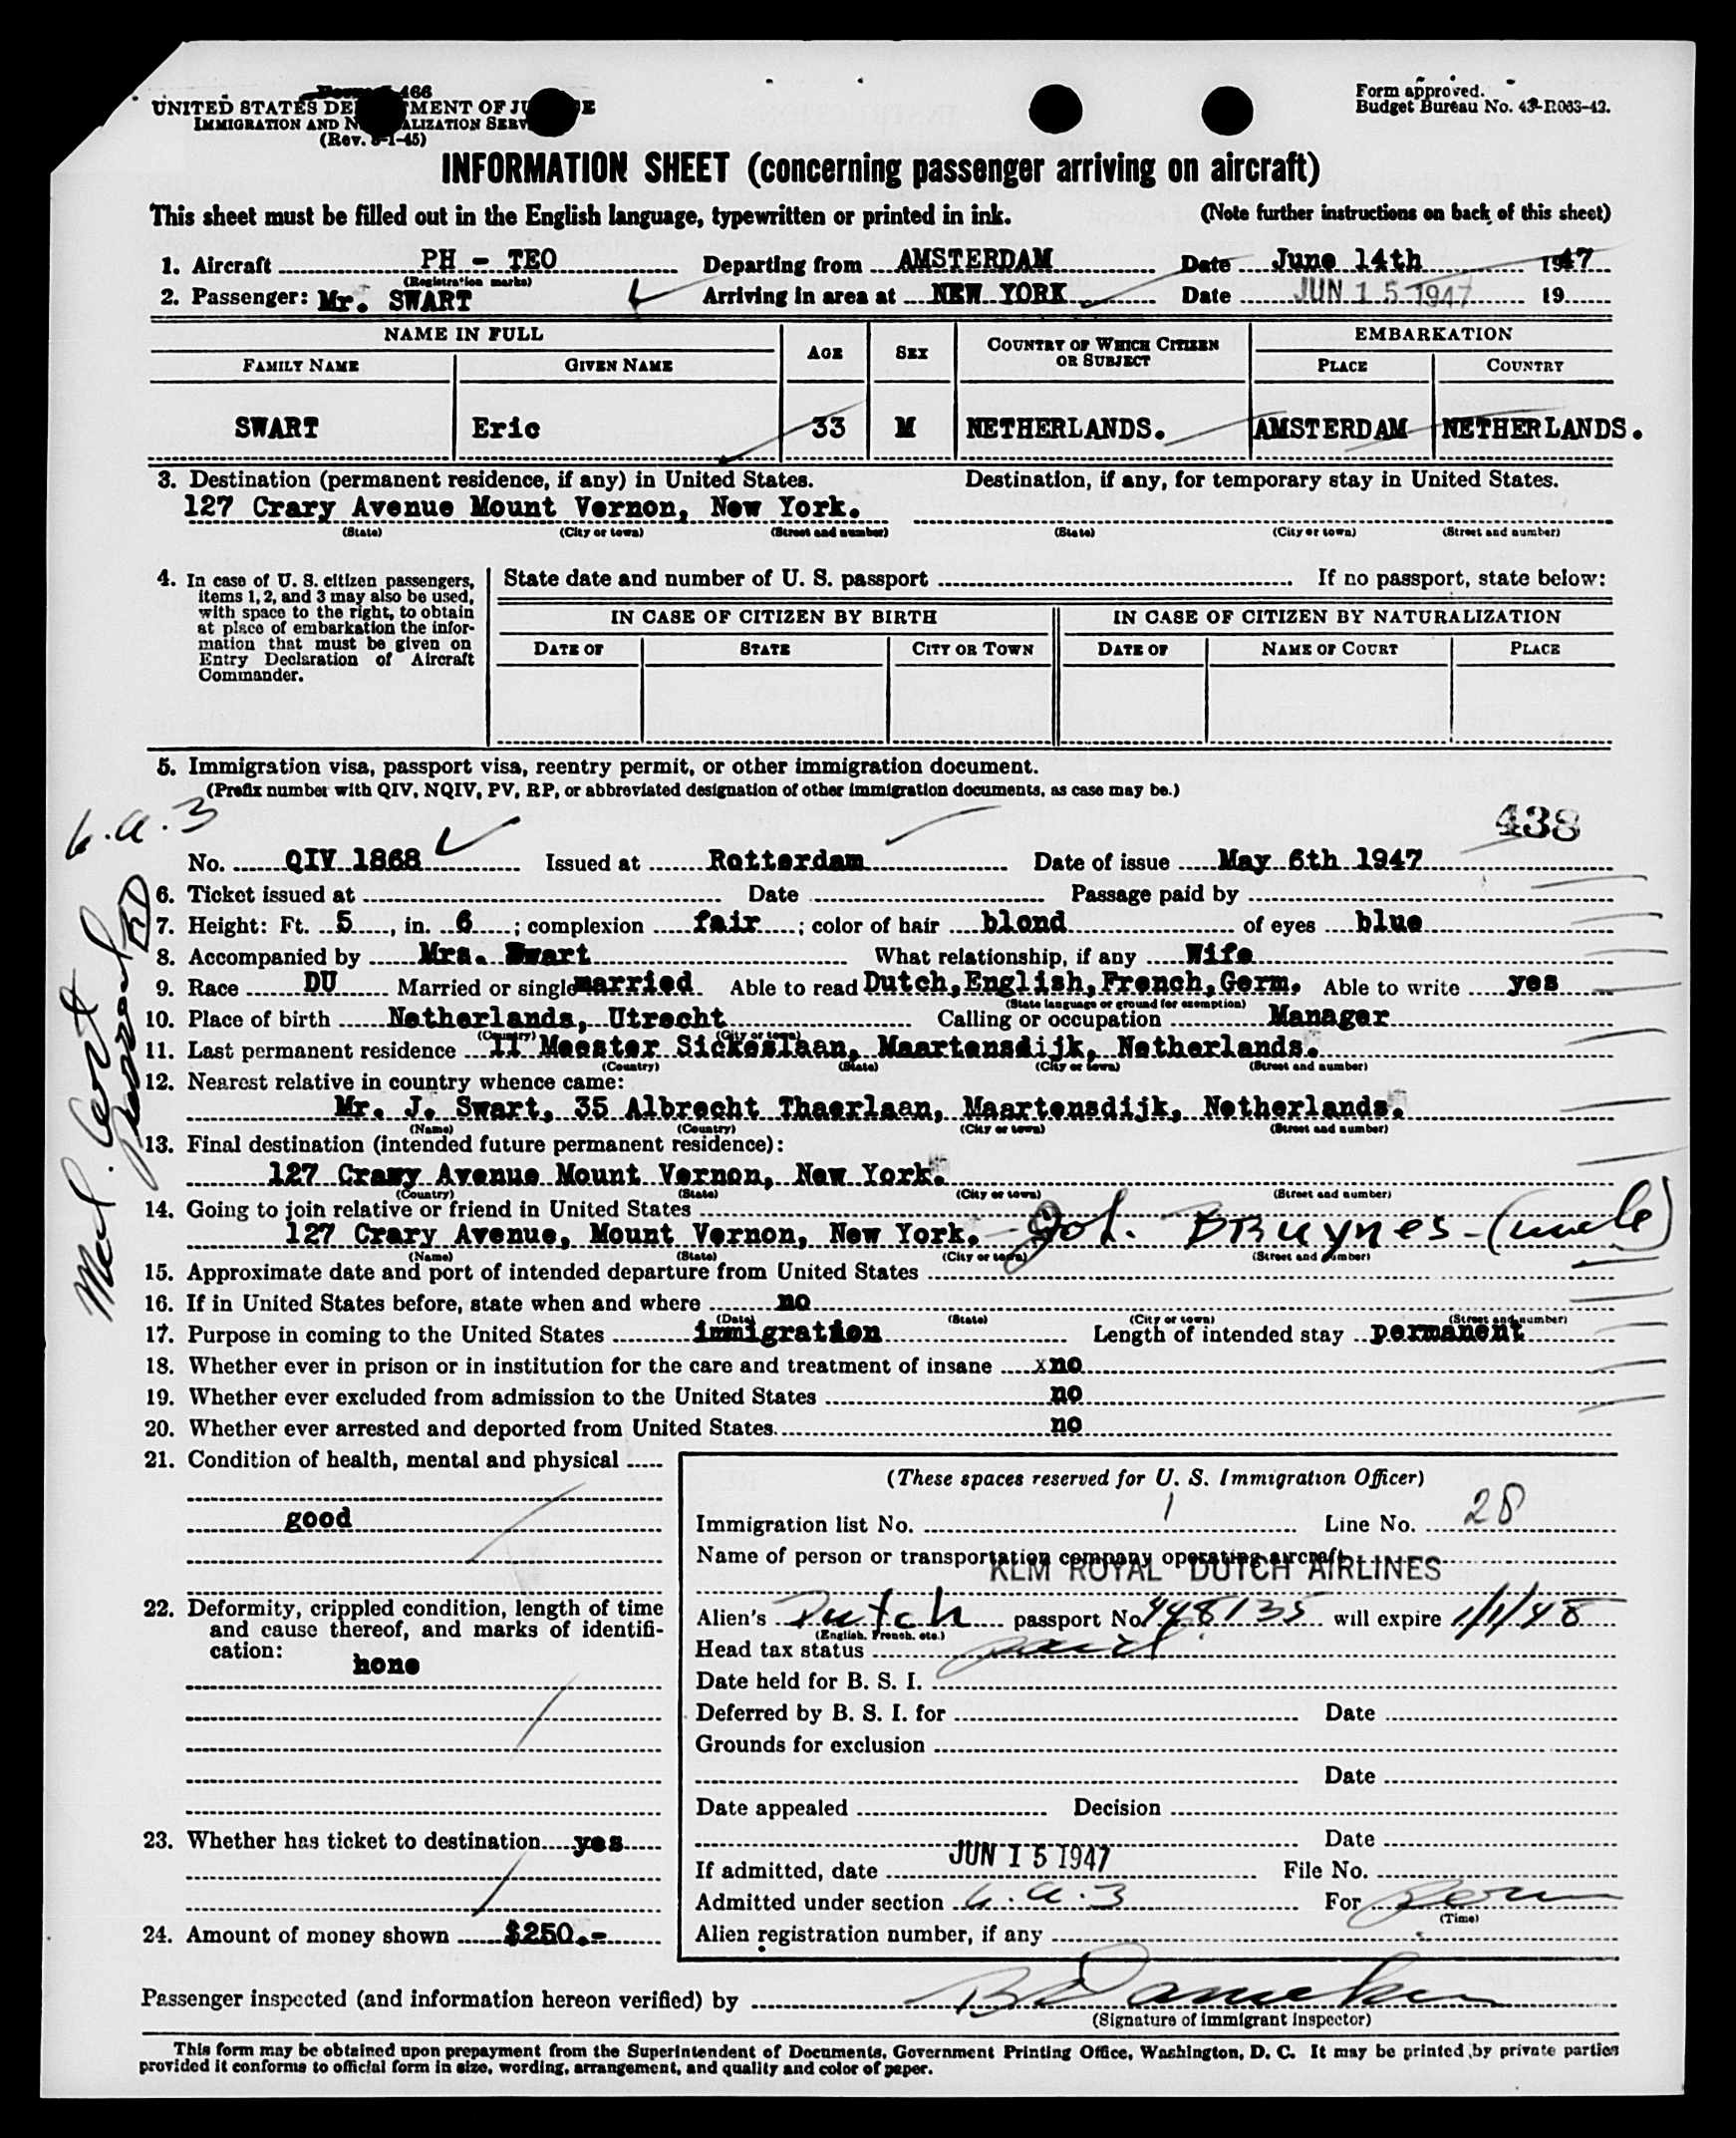 466
UNITED STATES DE MENT OF JU E
IMMIGRATION AND N ALIZATION SERV
(Rev. -1-45)
Form approved.
Budget Bureau No. 43-R063-42.
INFORMATION SHEET (concerning passenger arriving on aircraft)
This sheet must be filled out in the English language, typewritten or printed in ink. (Note further instructions on back of this sheet)
1. Aircraft PH - TEO Departing from AMSTERDAM Date June 14th 1947
(Registration marks)
2. Passenger: Mr. SWART Arriving in area at NEW YORK Date JUN 15 1947 19
NAME IN FULL AGE SEX COUNTRY OF WHICH CITIZEN OR SUBJECT EMBARKATION
FAMILY NAME GIVEN NAME PLACE COUNTRY
SWART Eric 33 M NETHERLANDS. AMSTERDAM NETHERLANDS.
3. Destination (permanent residence, if any) in United States. Destination, if any, for temporary stay in United States.
127 Crary Avenue Mount Vernon, New York.
(State) (City or town) (Street and number) (State) (City or town) (Street and number)
4. In case of U. S. citizen passengers,
items 1, 2, and 3 may also be used,
with space to the right, to obtain
at place of embarkation the infor-
mation that must be given on
Entry Declaration of Aircraft
Commander.
State date and number of U. S. passport If no passport, state below:
IN CASE OF CITIZEN BY BIRTH IN CASE OF CITIZEN BY NATURALIZATION
DATE OF STATE CITY OR TOWN DATE OF NAME OF COURT PLACE
5. Immigration visa, passport visa, reentry permit, or other immigration document.
(Prefix number with QIV, NQIV, PV, RP, or abbreviated designation of other immigration documents, as case may be.)
6.a.3
438
No. QIV 1868 Issued at Rotterdam Date of issue May 6th 1947
6. Ticket issued at Date Passage paid by
7. Height: Ft. 5, in. 6; complexion fair; color of hair blond of eyes blue
8. Accompanied by Mrs. Swart What relationship, if any Wife
9. Race DU Married or single married Able to read Dutch, English, French, Germ. Able to write yes
(State language or ground for exemption)
10. Place of birth Netherlands, Utrecht Calling or occupation Manager
(Country) (City or town)
11. Last permanent residence 11 Meester Sickeslaan, Maartensdijk, Netherlands.
(Country) (State) (City or town) (Street and number)
12. Nearest relative in country whence came:
Mr. J. Swart, 35 Albrecht Thaerlaan, Maartensdijk, Netherlands.
(Name) (Country) (City or town) (Street and number)
13. Final destination (intended future permanent residence):
127 Crary Avenue Mount Vernon, New York.
(Country) (State) (City or town) (Street and number)
14. Going to join relative or friend in United States
127 Crary Avenue, Mount Vernon, New York. - Joh. BRuynes - (uncle)
(Name) (State) (City or town) (Street and number)
15. Approximate date and port of intended departure from United States
16. If in United States before, state when and where no
(Date) (State) (City or town) (Street and number)
17. Purpose in coming to the United States immigration Length of intended stay permanent
18. Whether ever in prison or in institution for the care and treatment of insane xno
19. Whether ever excluded from admission to the United States no
20. Whether ever arrested and deported from United States. no
21. Condition of health, mental and physical
good
22. Deformity, crippled condition, length of time
and cause thereof, and marks of identifi-
cation:
none
23. Whether has ticket to destination yes
24. Amount of money shown $250.-
(These spaces reserved for U. S. Immigration Officer)
Immigration list No. 1 Line No. 28
Name of person or transportation company operating aircraft
KLM ROYAL DUTCH AIRLINES
Alien's Dutch passport No. 448135 will expire 1/1/48
(English, French, etc.)
Head tax status paid
Date held for B. S. I.
Deferred by B. S. I. for Date
Grounds for exclusion
Date
Date appealed Decision
Date
If admitted, date JUN 15 1947 File No.
Admitted under section 6.a.3 For Perm
(Time)
Alien registration number, if any
Passenger inspected (and information hereon verified) by
(Signature of immigrant inspector)
This form may be obtained upon prepayment from the Superintendent of Documents, Government Printing Office, Washington, D. C. It may be printed by private parties
provided it conforms to official form in size, wording, arrangement, and quality and color of paper.
Med. Cert